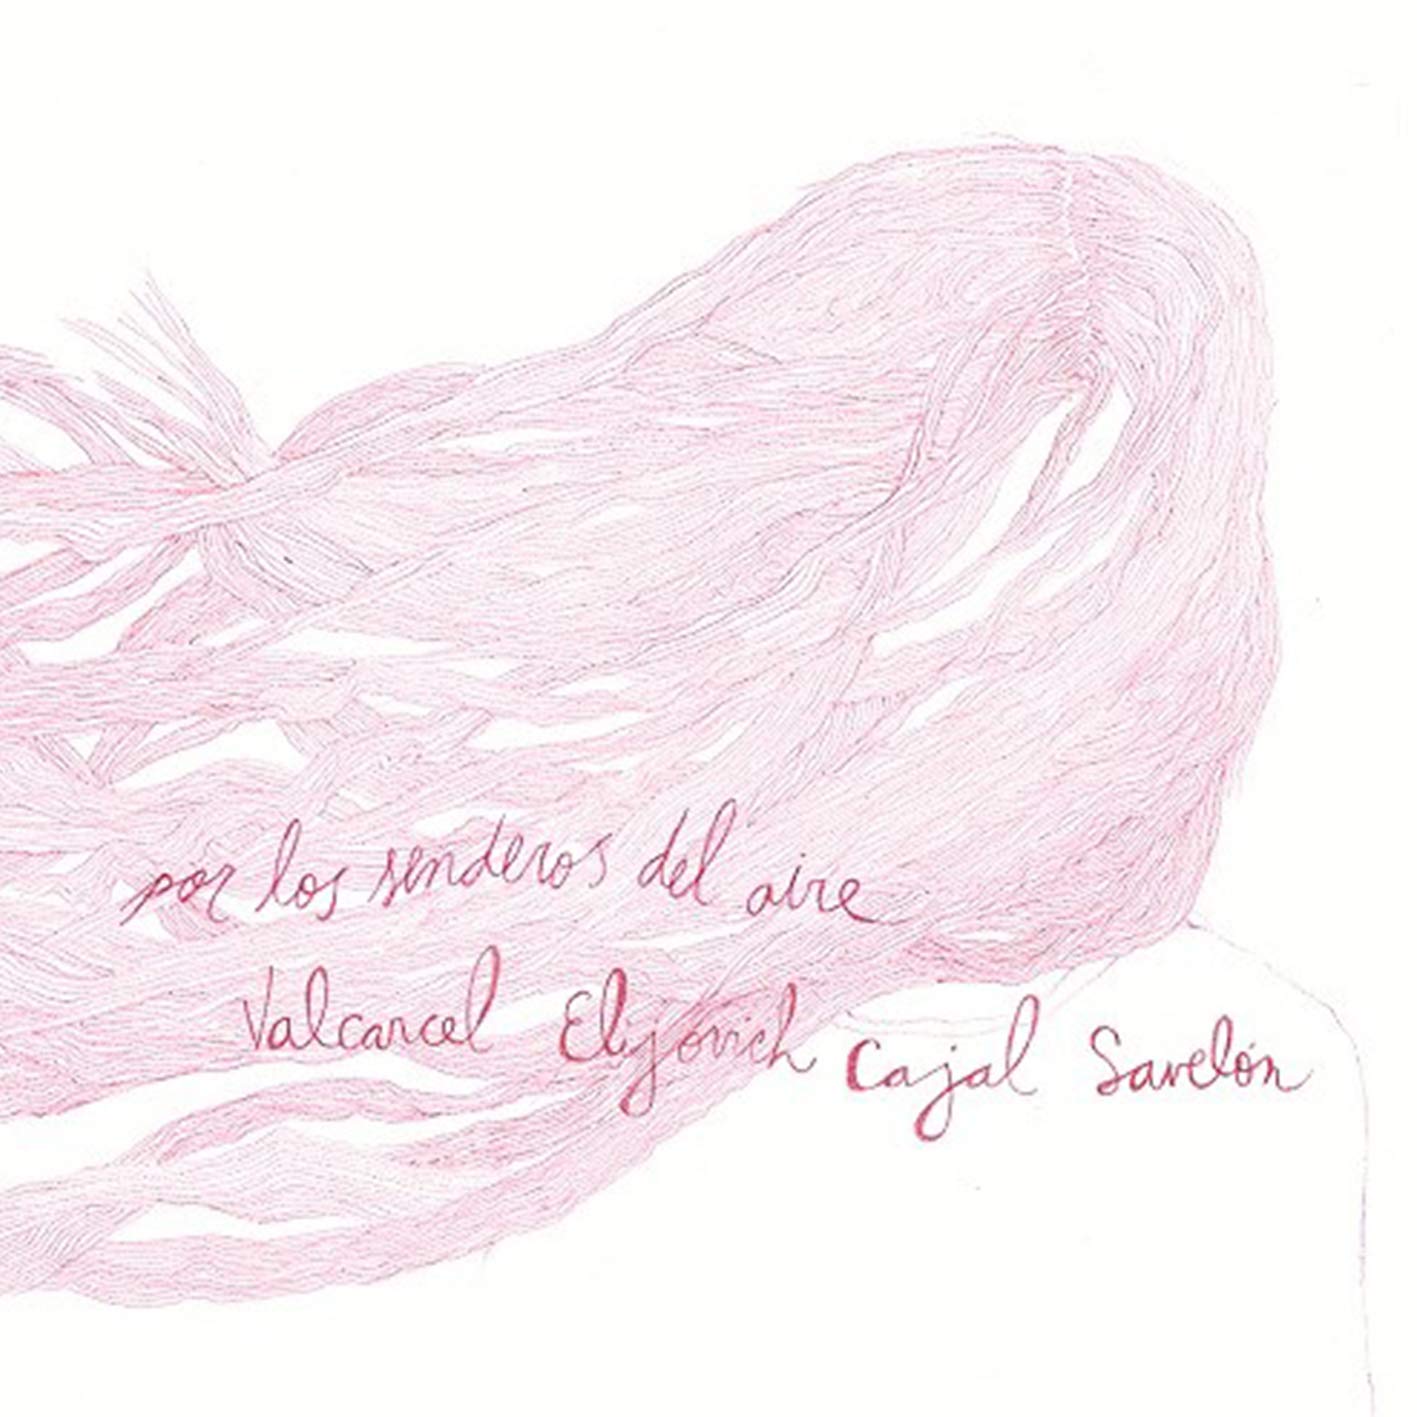 por los senderos del aire
Valcarcel Elijovich Cajal Savelón